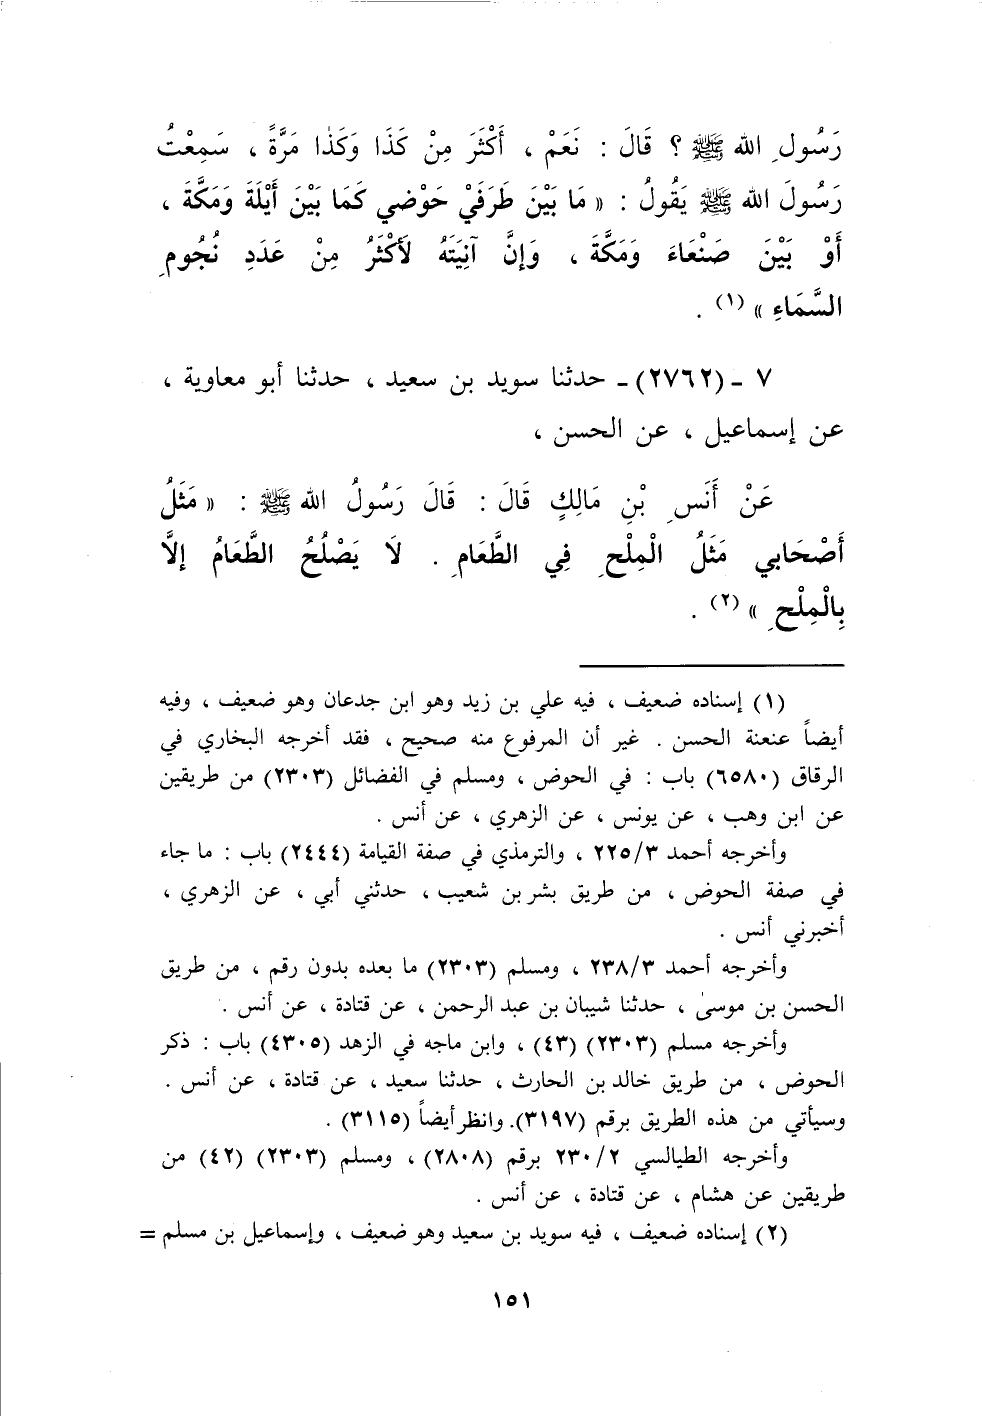 رَسُولِ الله ﷺ ؟ قَالَ : نَعَمْ ، أَكْثَرَ مِنْ كَذَا وَكَذٰا مَرَّةً ، سَمِعْتُ
رَسُولَ الله ﷺ يَقُولُ : « مَا بَيْنَ طَرَفَيْ حَوْضي كَمَا بَيْنَ أَيْلَةَ وَمَكَّةَ ،
أَوْ بَيْنَ صَنْعَاءَ وَمَكَّةَ ، وَإنَّ آنِيَتَهُ لَأَكْثَرُ مِنْ عَدَدِ نُجُومِ
السَّمَاءِ » (١) .
٧ ـ (٢٧٦٢) ـ حدثنا سويد بن سعيد ، حدثنا أبو معاوية ،
عن إسماعيل ، عن الحسن ،
عَنْ أَنَسِ بْنِ مَالِكٍ قَالَ : قَالَ رَسُولُ الله ﷺ : « مَثَلُ
أَصْحَابي مَثَلُ الْمِلْحِ فِي الطَّعَامِ . لَا يَصْلُحُ الطَّعَامُ إلاَّ
بِالْمِلْحِ » (٢) .
(١) إسناده ضعيف ، فيه علي بن زيد وهو ابن جدعان وهو ضعيف ، وفيه
أيضاً عنعنة الحسن . غير أن المرفوع منه صحيح ، فقد أخرجه البخاري في
الرقاق (٦٥٨٠) باب : في الحوض ، ومسلم في الفضائل (٢٣٠٣) من طريقين
عن ابن وهب ، عن يونس ، عن الزهري ، عن أنس .
وأخرجه أحمد ٢٢٥/٣ ، والترمذي في صفة القيامة (٢٤٤٤) باب : ما جاء
في صفة الحوض ، من طريق بشر بن شعيب ، حدثني أبي ، عن الزهري ،
أخبرني أنس .
وأخرجه أحمد ٢٣٨/٣ ، ومسلم (٢٣٠٣) ما بعده بدون رقم ، من طريق
الحسن بن موسىٰ ، حدثنا شيبان بن عبد الرحمن ، عن قتادة ، عن أنس .
وأخرجه مسلم (٢٣٠٣) (٤٣) ، وابن ماجه في الزهد (٤٣٠٥) باب : ذكر
الحوض ، من طريق خالد بن الحارث ، حدثنا سعيد ، عن قتادة ، عن أنس .
وسيأتي من هذه الطريق برقم (٣١٩٧). وانظر أيضاً (٣١١٥) .
وأخرجه الطيالسي ٢٣٠/٢ برقم (٢٨٠٨) ، ومسلم (٢٣٠٣) (٤٢) من
طريقين عن هشام ، عن قتادة ، عن أنس .
(٢) إسناده ضعيف ، فيه سويد بن سعيد وهو ضعيف ، وإسماعيل بن مسلم =
١٥١